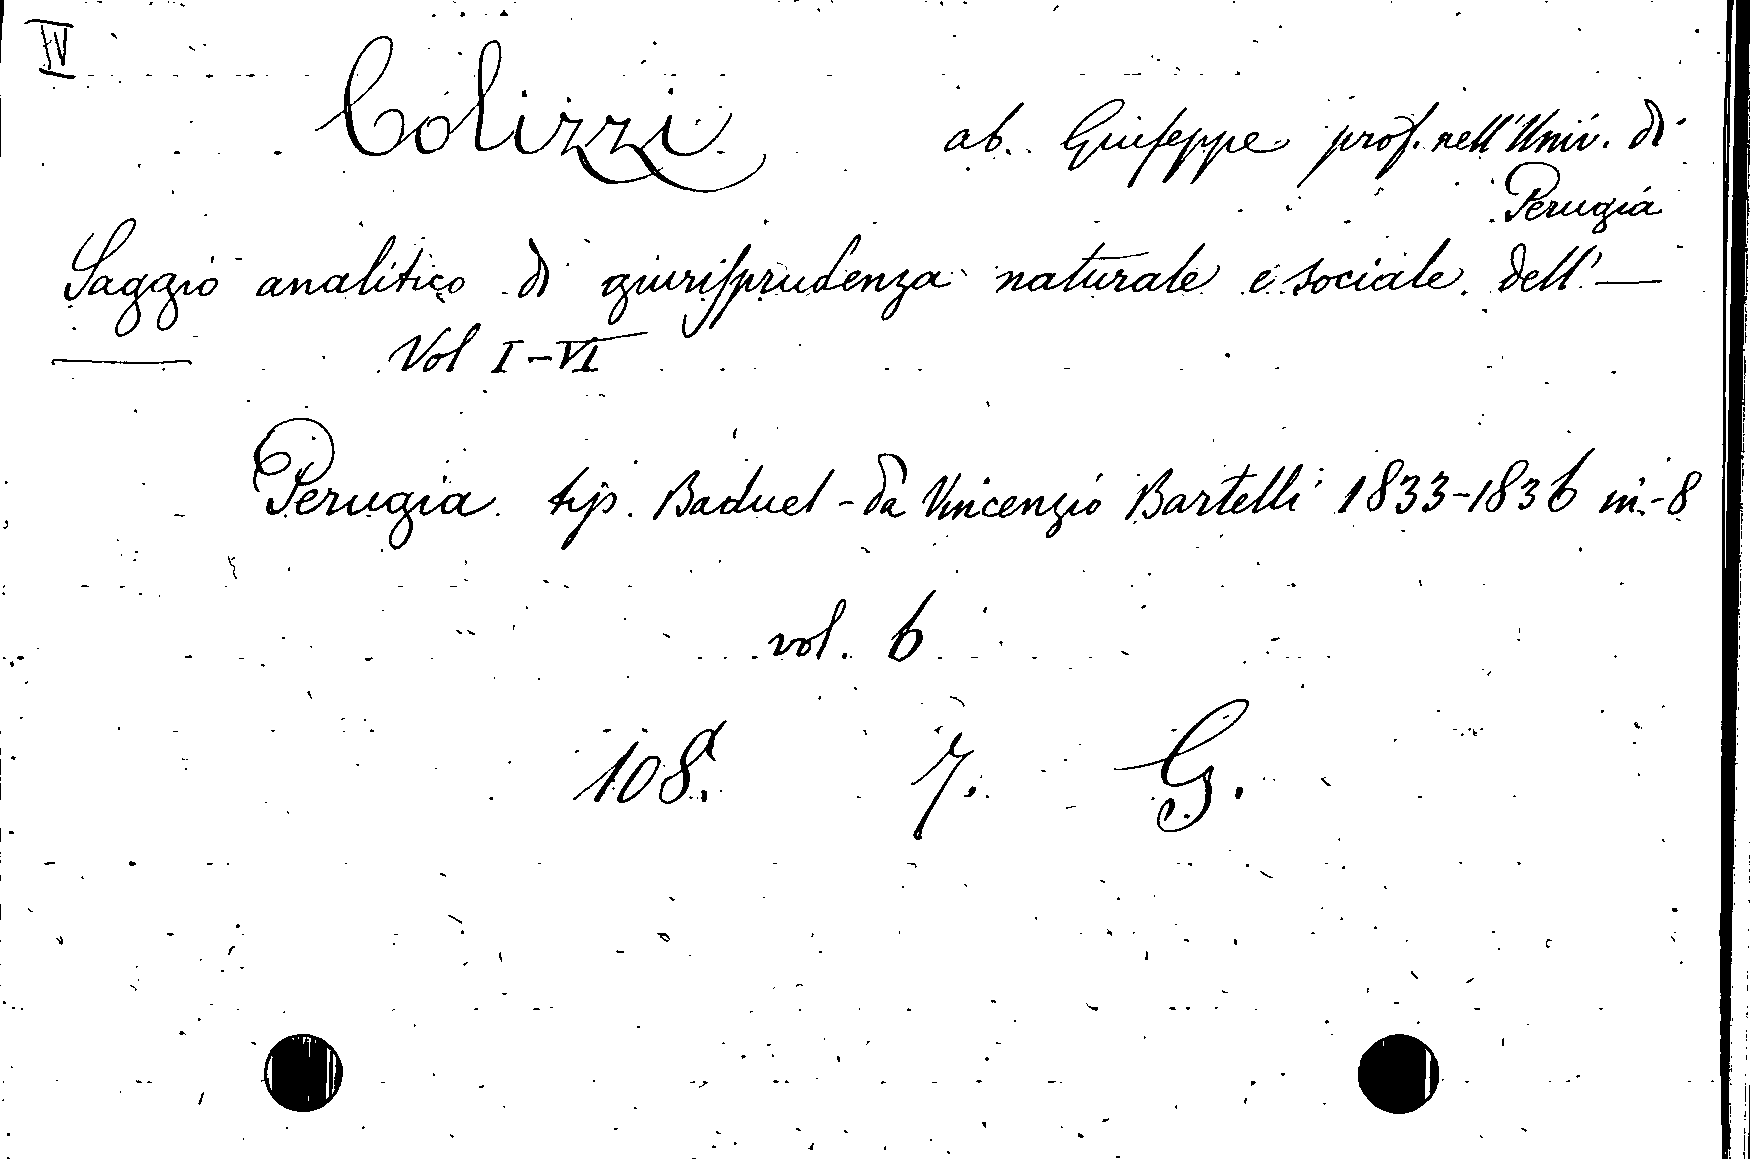 IV
Colizzi ab. Giuseppe prof. nell'Univ. di
Perugia
Saggio analitico di giurisprudenza naturale e sociale. dell' —
Vol I-VI
Perugia. tip. Baduel - da Vincenzio Bartelli 1833-1836 in-8
vol. 6
108. 7. G.